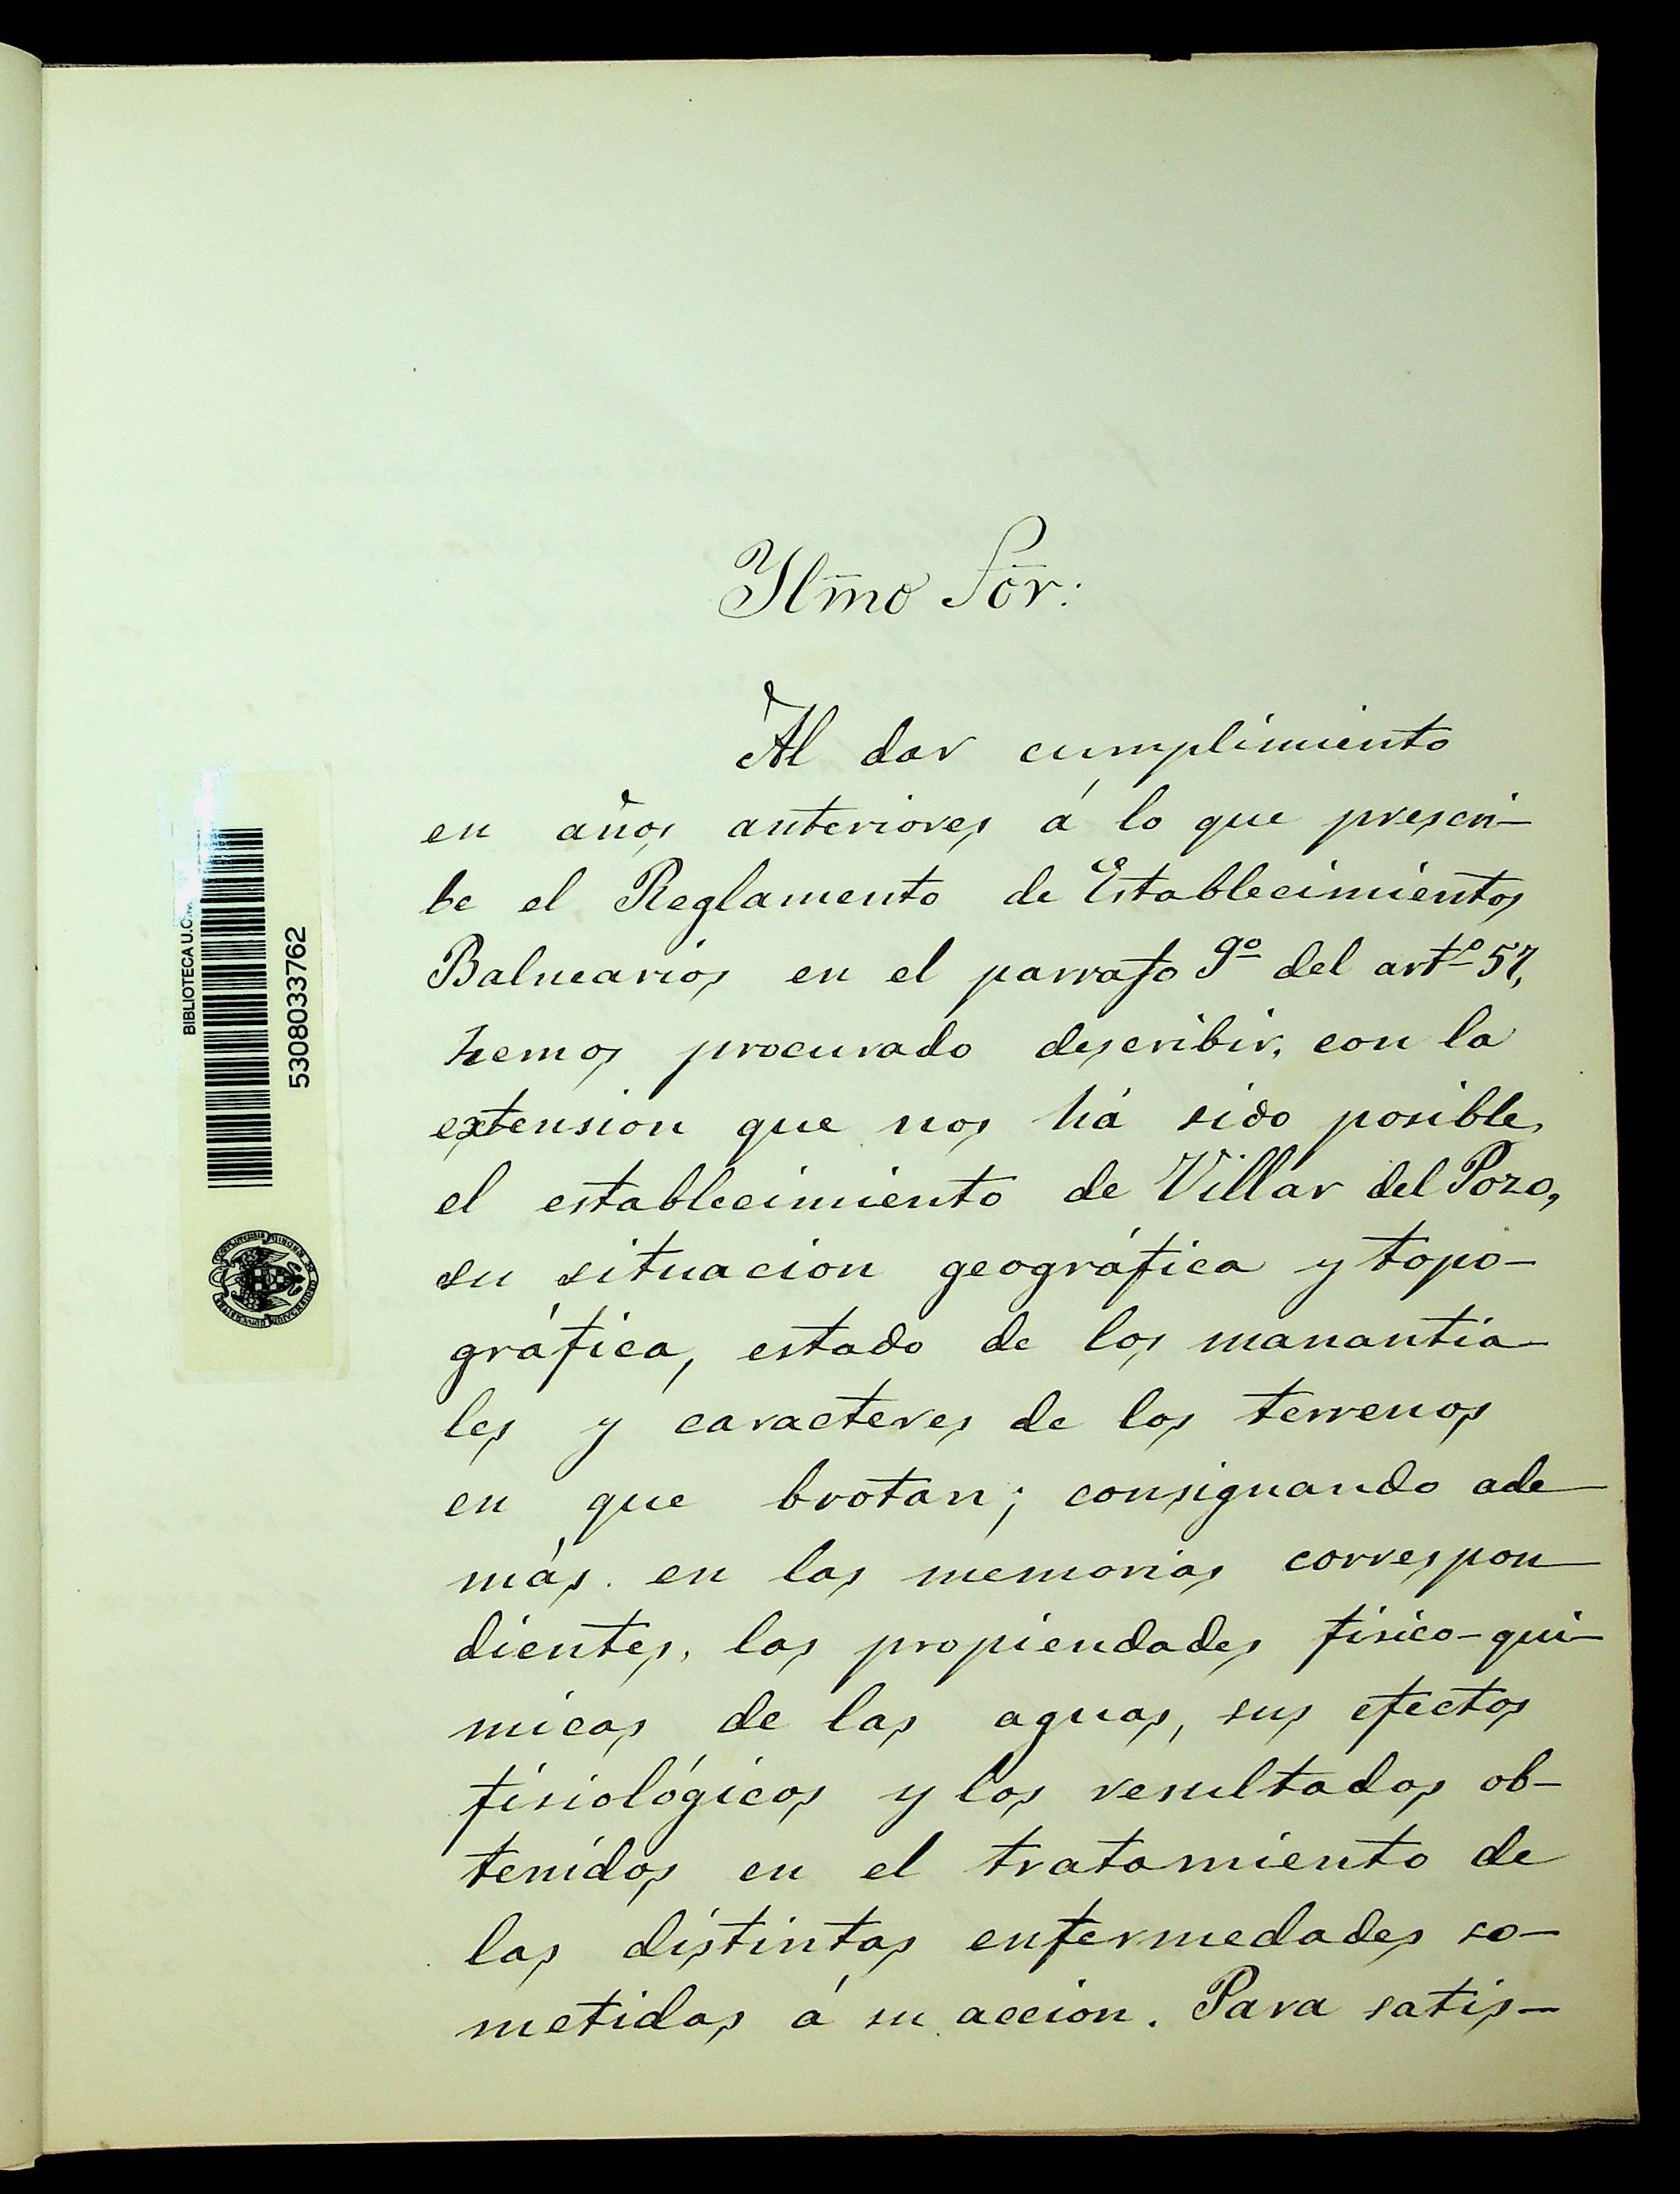 Ylm̄o Sōr:
Al dar cumplimiento
en años anteriores á lo que prescri-
be el Reglamento de Establecimientos
Balnearios en el parrafo 9º del artº 57,
hemos procurado describir, con la
extension que nos há sido posible,
el establecimiento de Villar del Pozo,
su situacion geográfica y topo-
gráfica, estado de los manantia-
les y caracteres de los terrenos
en que brotan; consignando ade-
más. en las memorias correspon-
dientes, las propiendades fisico-qui-
micas de las aguas, sus efectos
fisiológicos y los resultados ob-
tenidos en el tratamiento de
las distintas enfermedades so-
metidas á su accion. Para satis-
BIBLIOTECA U.C.M.
5308033762